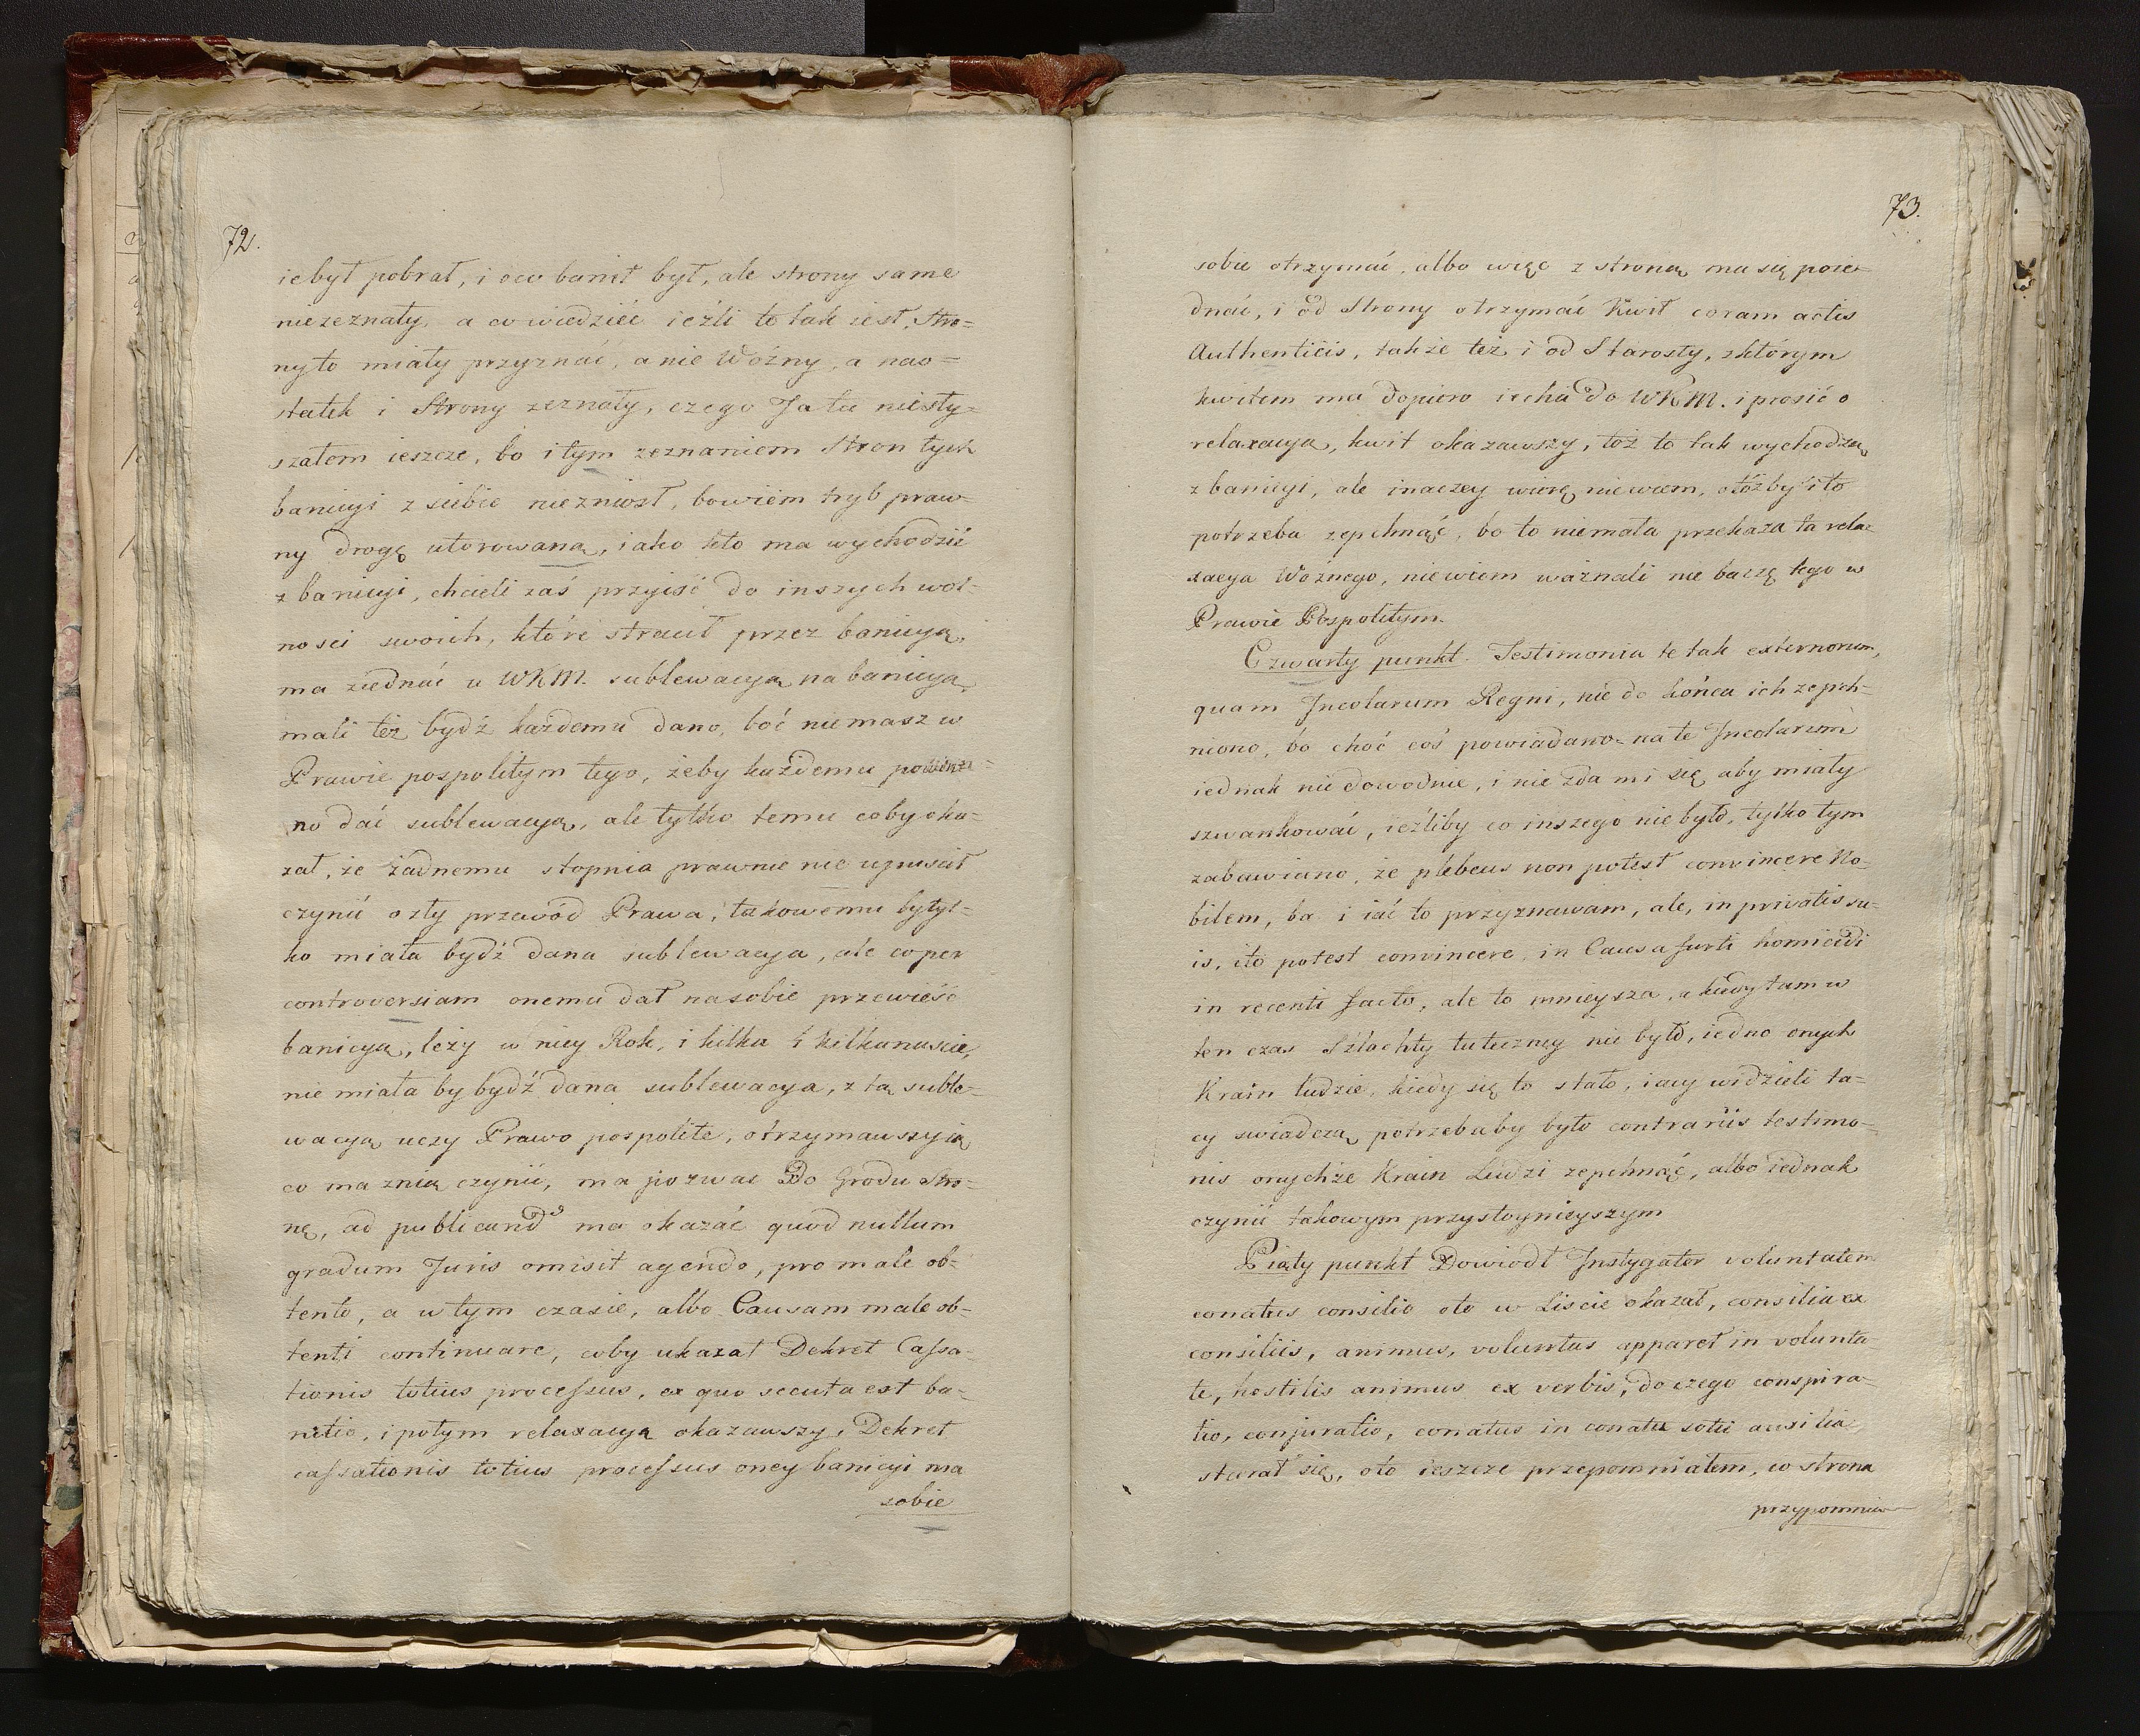 72.
ie był pobrał, i ocw banit był, ale strony same
niezeznały, a co wiedzieć ieźli to tak iest, Stro=
ny to miały przyznać, a nie Woźny, a nao=
statek i Strony zeznały, czego Ja tu niesły=
szałem ieszcze, bo i tym zeznaniem Stron tych
banicyi z siebie niezniosł, bowiem tryb praw=
ny drogę utorowaną, iako kto ma wychodzić
z banicyi, chcieli zaś przyiść do inszych wol=
ności swoich, które stracił przez banicyą,
ma ziednać u WKM. sublewacyą na banicyą,
mali też bydź każdemu dano, boć nie masz w
Prawie pospolitym tego, żeby każdemu powin=
no dać sublewacyą, ale tylko temu coby oka=
zał, że żadnemu stopnia prawnie nie upuścił
czynić o zły przewód Prawa, takowemu by tyl=
ko miała bydź dana sublewacya, ale co per
controversiam onemu dał na sobie przewieść
banicyą, leży w niey Rok, i kilka i kilkanaście,
nie miała by bydź dana sublewacya, z tą suble=
wacyą uczy Prawo pospolite, otrzymawszy ią
co ma z nią czynić, ma pozwać Do Grodu Stro=
nę, ad publicand⁹ ma okazać quod nullum
gradum Juris omisit agendo, pro male ob=
tento, a w tym czasie, albo Causam male ob=
tenti continuare, coby ukazał Dekret Cassa=
tionis totius processus, ex quo secuta est ba=
nitio, i potym relaxacyą okazawszy, Dekret
cassationis totius processus oney banicyi ma
sobie
73.
sobie otrzymać, albo więc z stroną ma się poie=
dnać, i od Strony otrzymać Kwit coram actis
Authenticis, także też i od Starosty, z którym
kwitem ma dopiero iechać do WKM. i prosić o
relaxacyą, kwit okazawszy, toż to tak wychodzą
z banicyi, ale inaczey wierę niewiem, otóżby i to
potrzeba zepchnąć, bo to niemała przekaza ta rela=
xacya Woźnego, niewiem ważnali nie baczę tego w
Prawie Pospolitym.
Czwarty punkt. Testimonia te tak externorum,
quam Incolarum Regni, nie do końca ich zepch=
niono, bo choć coś powiadano na te Incolarum
iednak nie dowodnie, i nie zda mi się aby miały
szwankować, ieźliby co inszego nie było, tylko tym
zabawiano, że plebeus non potest convincere No=
bilem, ba i iać to przyznawam, ale, in privatis su=
is, ito potest convincere, in Causa furti homicidi
in recenti facto, ale to mnieysza, a kiedy tam w
ten czas Szlachty tuteczney nie było, iedno onych
Krain ludzie, kiedy się to stało, iacy widzieli ta=
cy swiadczą, potrzebaby było contrariis testimo=
nis onychże Krain Ludzi zepchnąć, albo iednak
czynić takowym przystoynieyszym
Piąty punkt Dowiodł Instygator voluntatem
conatus consilio oto w Liscie okazał, consilia ex
consiliis, animus, voluntas apparet in volunta=
te, hostilis animus ex verbis, do czego conspira=
tio, conjuratio, conatus in conatu sotii auxilia
starał się, oto ieszcze przepomniałem, co strona
przypomnia=